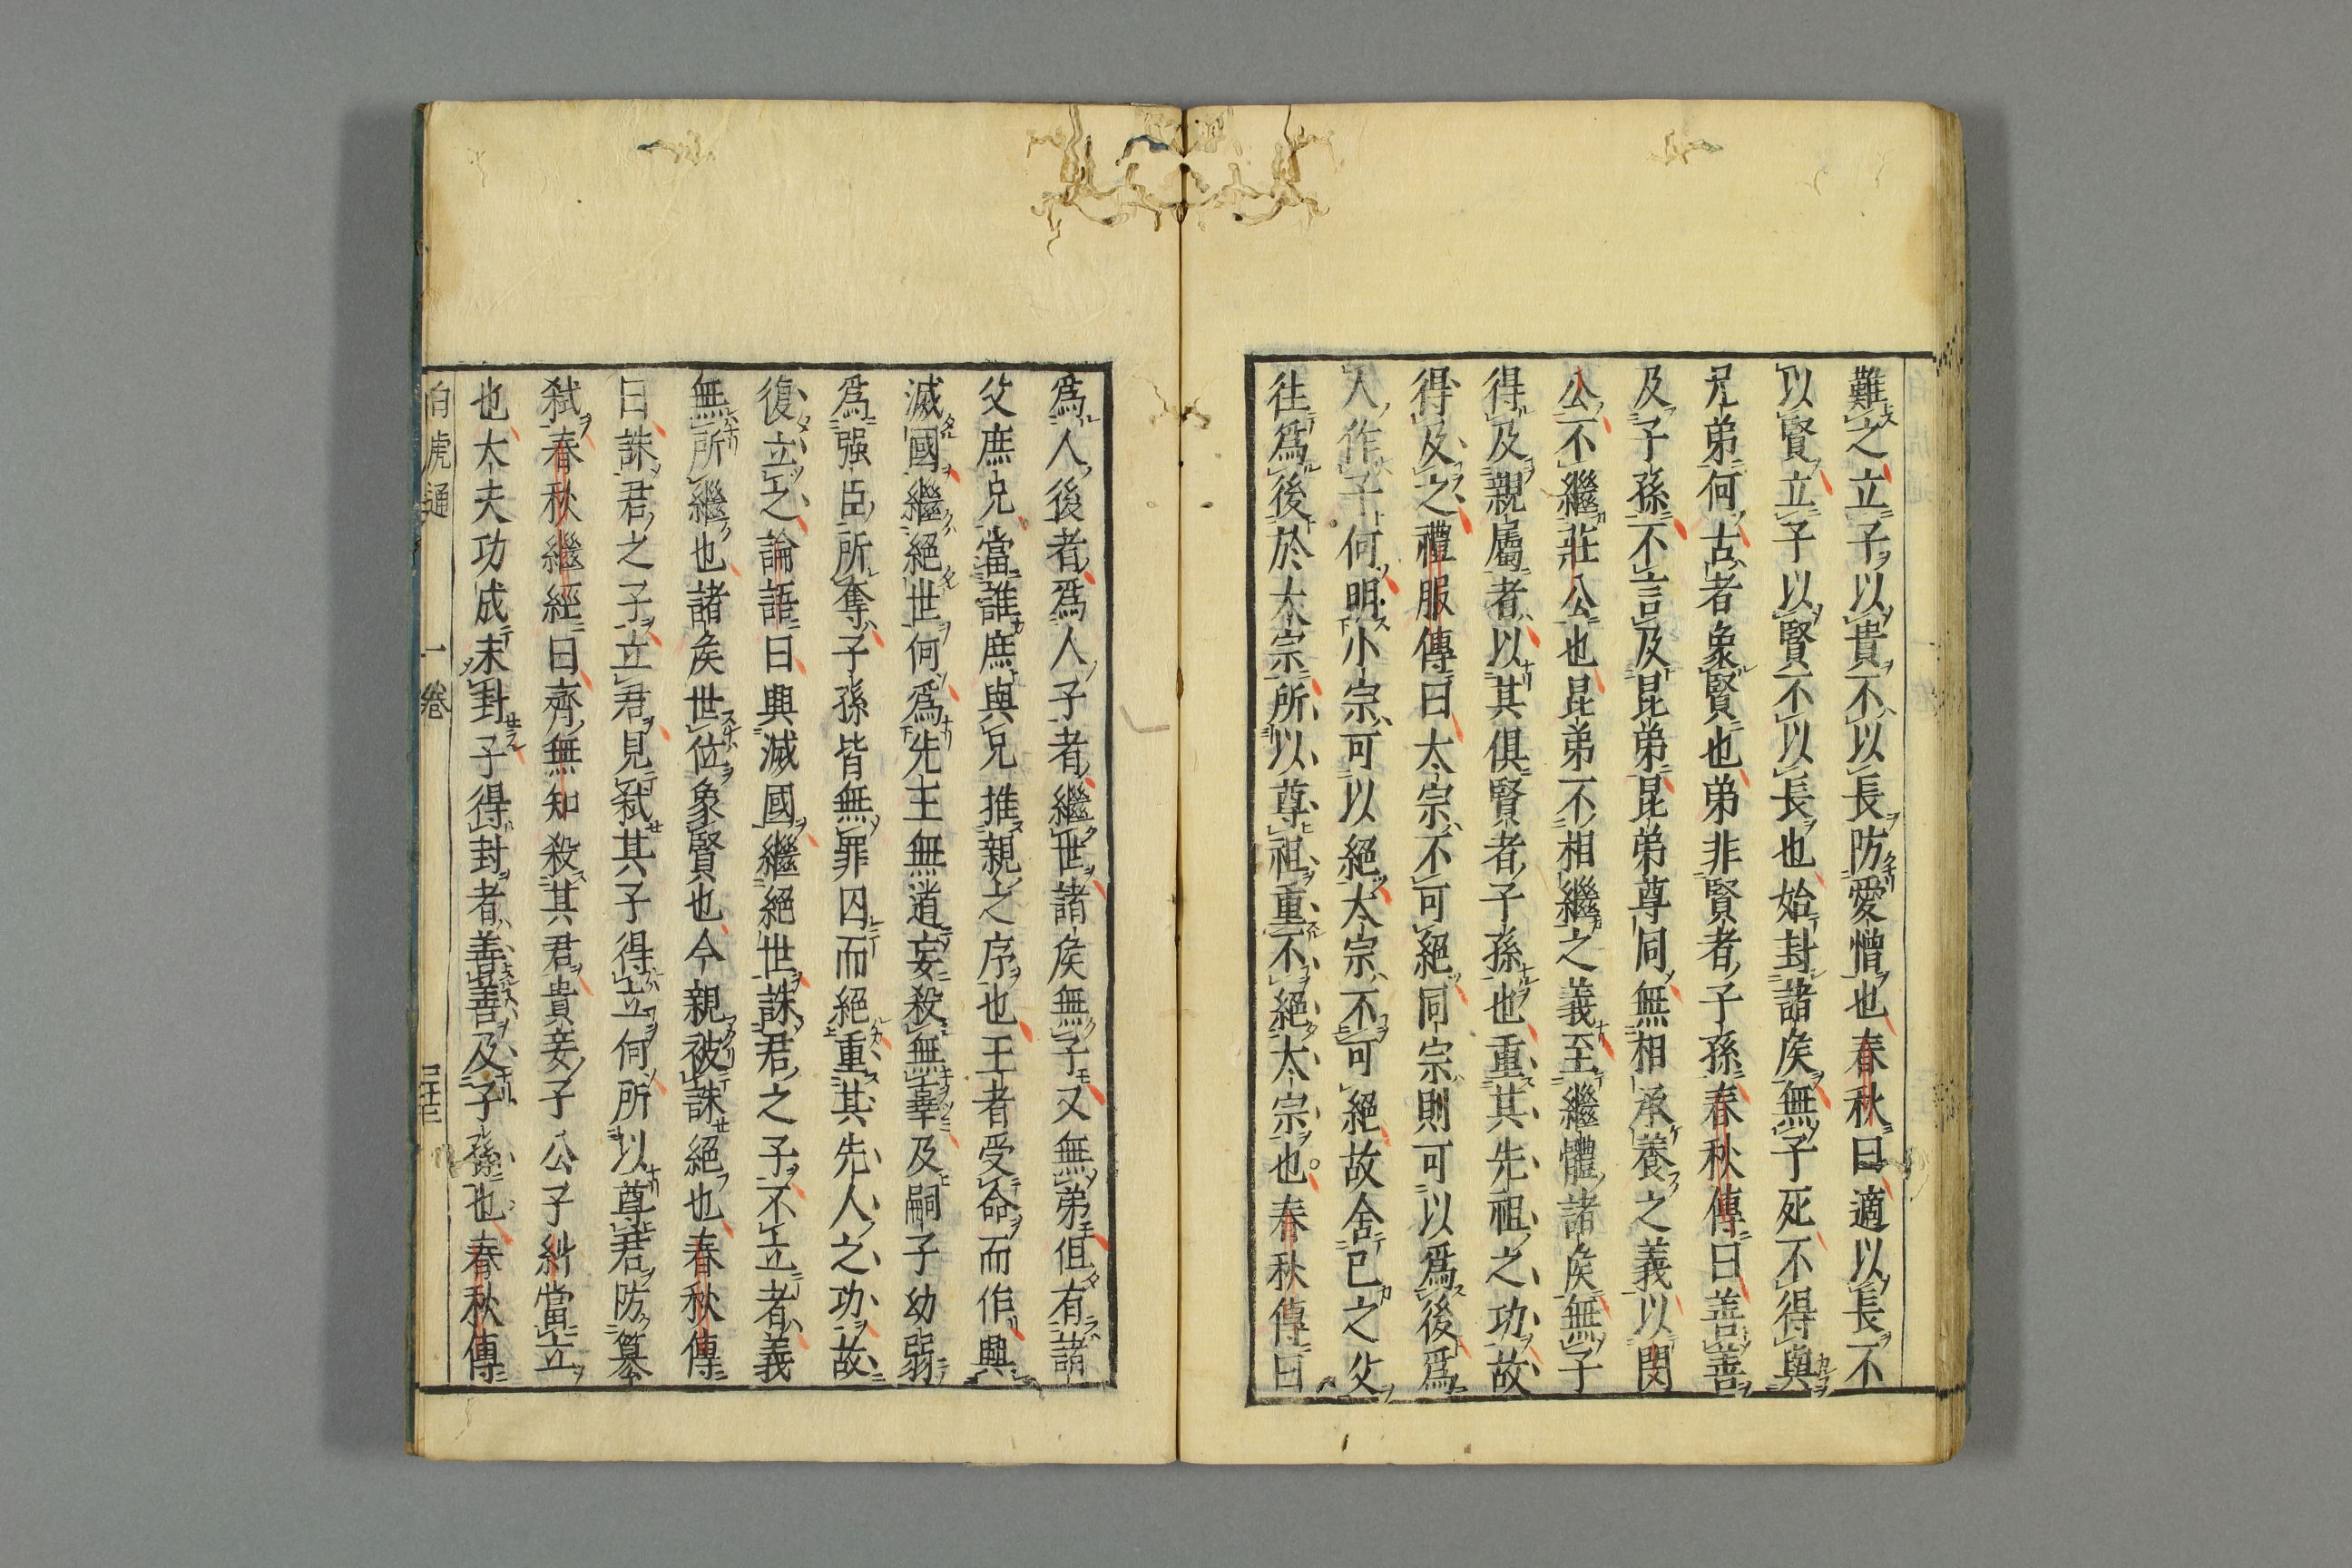 難之立子以貴不以長防愛憎也春秋曰適以長不
以賢立子以賢不以長也始封諸矦無子死不得與
兄弟何古者象賢也弟非賢者子孫春秋傳曰善善
及子孫不言及昆弟昆弟尊同無相承養之義以閔
公不繼莊公也昆弟不相繼之義至繼體諸矦無子
得及親屬者以其俱賢者子孫也重其先祖之功故
得及之禮服傳曰大宗不可絕同宗則可以爲後爲
人作子何明小宗可以絕大宗不可絕故舍己之父
往爲後於大宗所以尊祖重不絕大宗也春秋傳曰
爲人後者爲人子者繼世諸矦無子又無弟但有諸
父庶兄當誰庶與兄推親之序也王者受命而作興
滅國繼絕世何爲先王無道妄殺無辜及嗣子幼弱
爲强臣所奪子孫皆無罪囚而絕重其先人之功故
復立之論語曰興滅國繼絕世誅君之子不立者義
無所繼也諸矦世位象賢也今親被誅絕也春秋傳
曰誅君之子立君見弒其子得立何所以尊君防篡
弒春秋繼經曰齊無知殺其君貴妾子公子糾當立
也大夫功成未封子得封者善善及子孫也春秋傳
白虎通 一卷